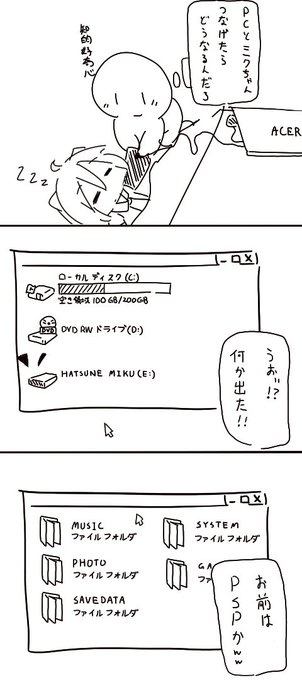 PCとミクちゃん
つなげたら
どうなるんだろ
知的好奇心
ACER
zzz
ローカルディスク(C:)
空き領域 100GB/200GB
DVD
DVD RW ドライブ(D:)
HATSUNE MIKU(E:)
うお!!?
何か出た!!
MUSIC
ファイルフォルダ
SYSTEM
ファイルフォルダ
PHOTO
ファイルフォルダ
GA
ファイル
SAVEDATA
ファイルフォルダ
お前は
PSPかww